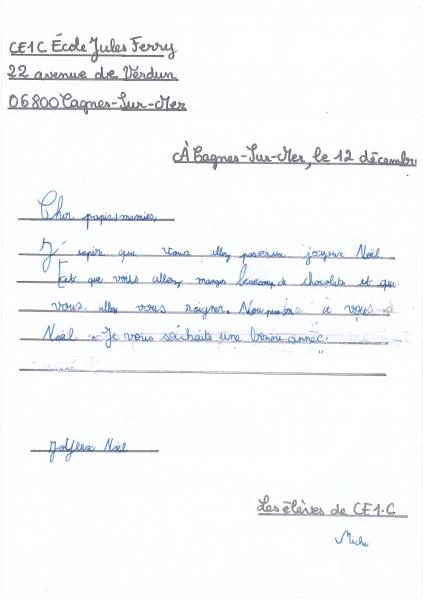 CE1C École Jules Ferry
22 avenue de Verdun
06800 Cagnes-Sur-Mer
À Cagnes-Sur-Mer, le 12 décembre
Cher papis, mamies,
J'éspér que vous allez passer un joyeux Noël
Est que vous allez manger beaucoup de chocolats et que
vous allez vous soigner. Nous pensons à vous à
Noël. Je vous souhaite une bonne année.
Joyeux Noël
Les élèves de CE1.C